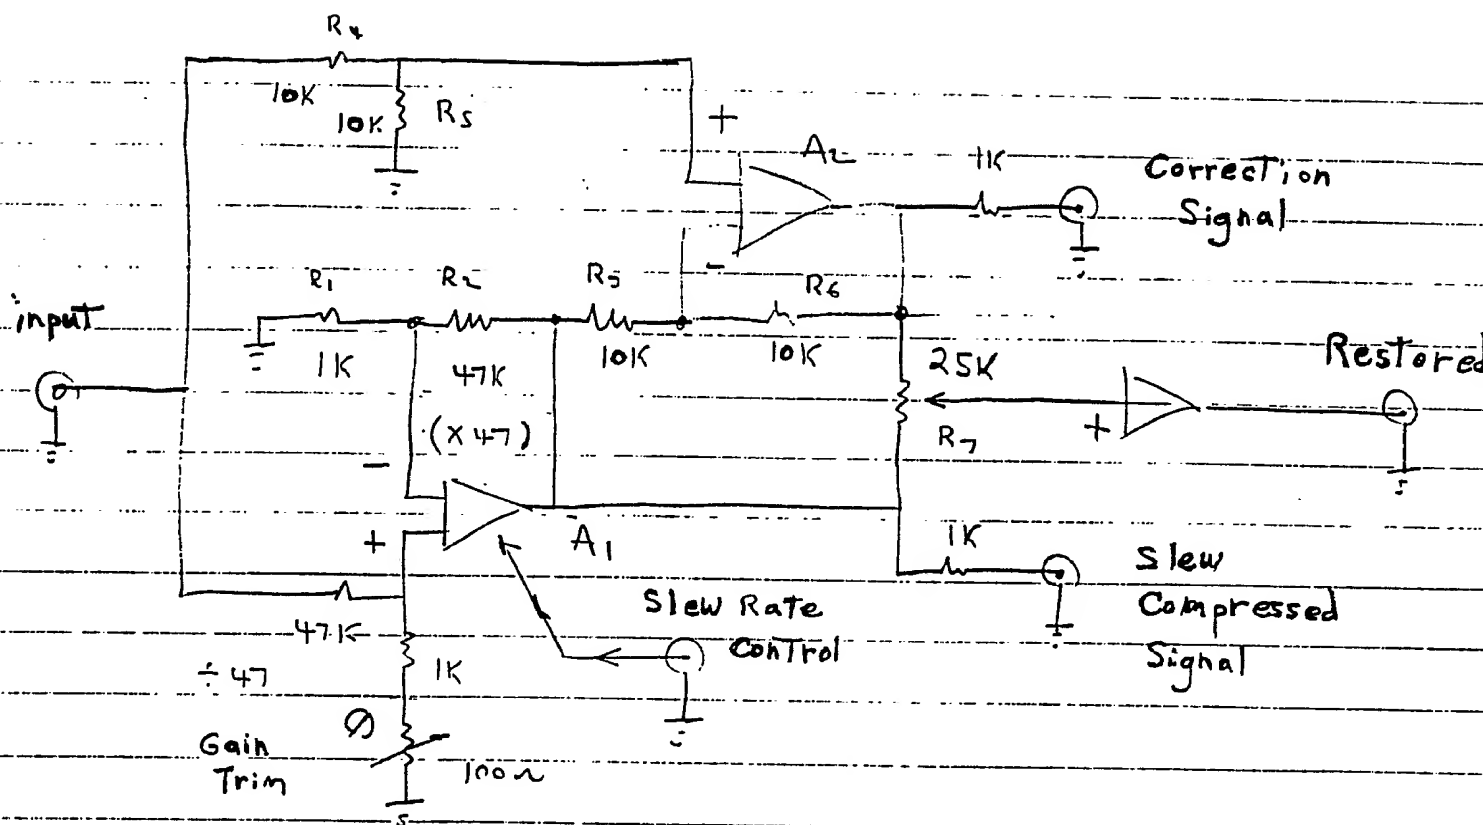 R4
10K
10K
R5
+
A2
1K
Correction
Signal
-
input
R1
R2
R5
R6
1K
47K
10K
10K
25K
Restored
(x47)
+
R7
-
+
A1
1K
Slew
Compressed
Signal
Slew Rate
Control
47K
÷47
1K
Ø
Gain
Trim
100Ω